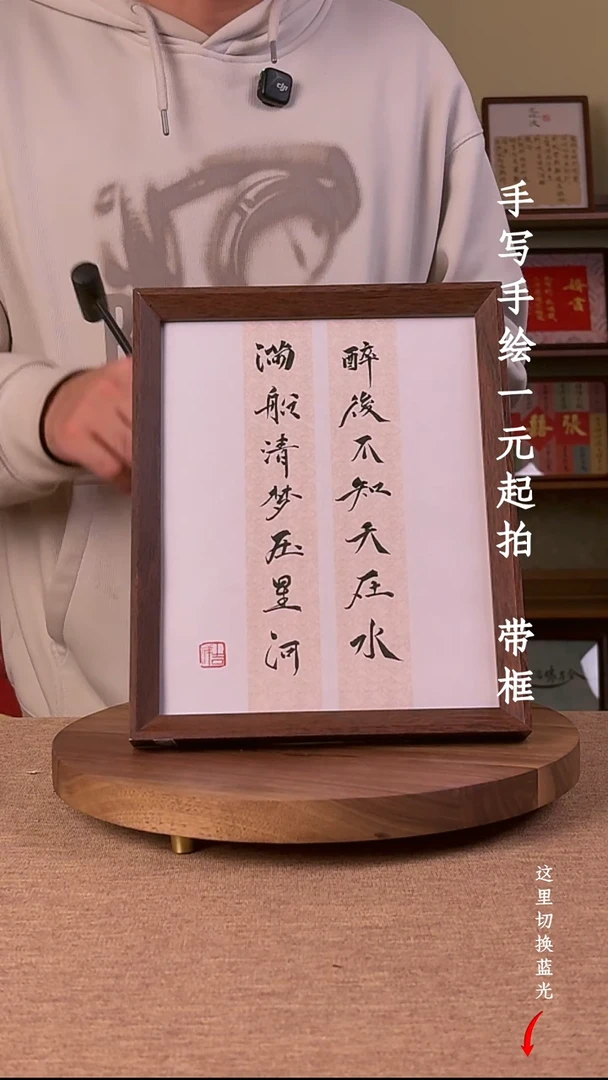 醉後不知天在水
满船清梦压星河
手写手绘一元起拍 带框
这里切换蓝光
dji